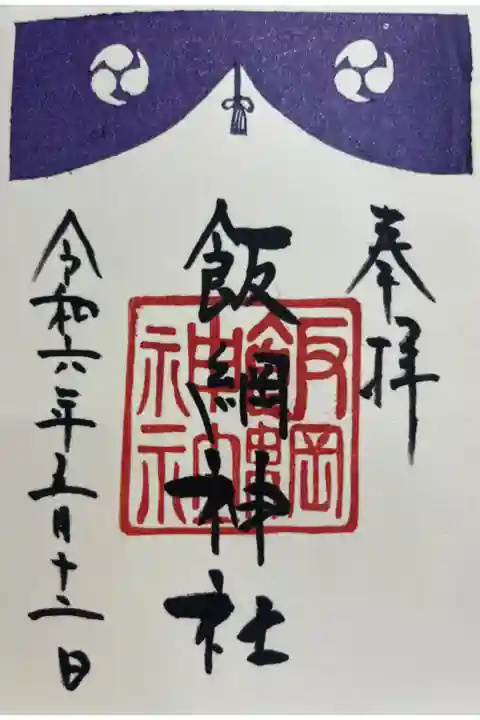 奉拝
飯綱神社
令和六年五月十二日
飯綱神社